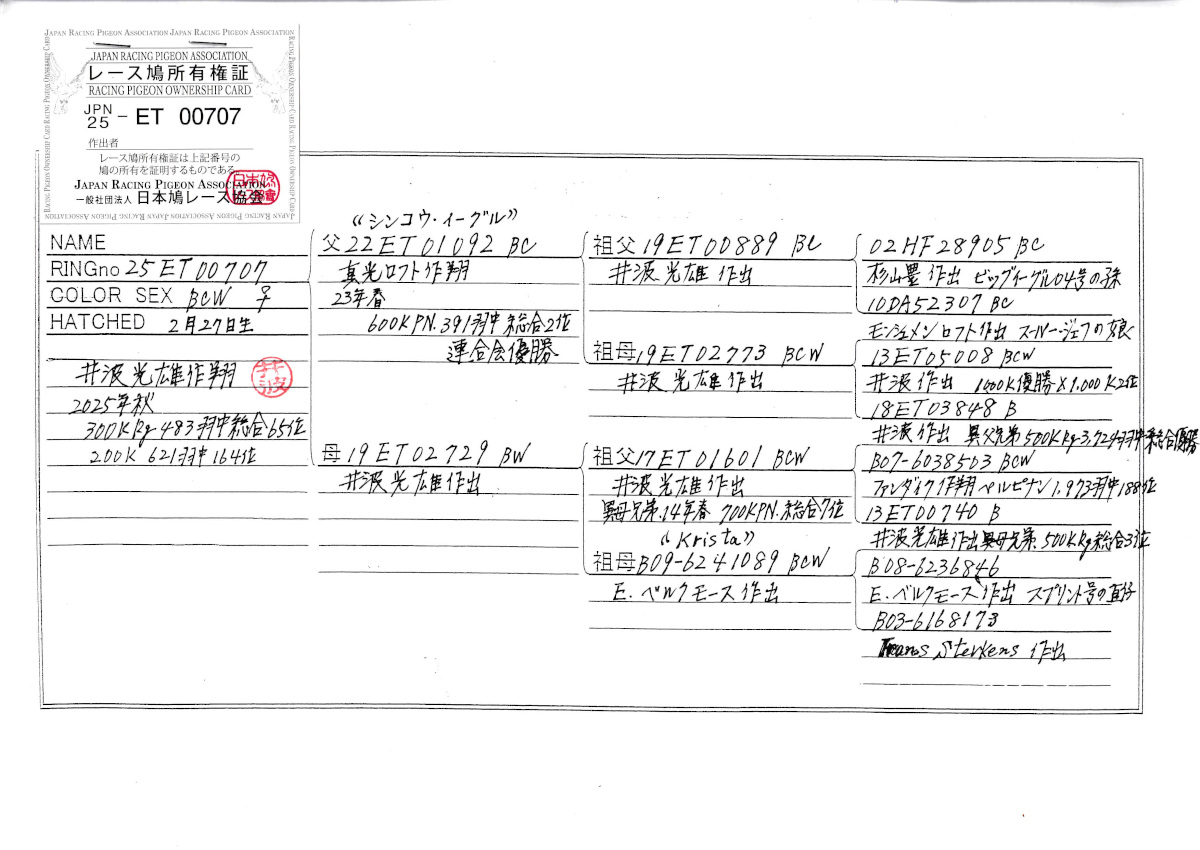 JAPAN RACING PIGEON ASSOCIATION JAPAN RACING PIGEON ASSOCIATION
JAPAN RACING PIGEON ASSOCIATION
レース鳩所有権証
RACING PIGEON OWNERSHIP CARD
JPN 25 - ET 00707
作出者
レース鳩所有権証は上記番号の
鳩の所有を証明するものである。
JAPAN RACING PIGEON ASSOCIATION
一般社団法人 日本鳩レース協会
NAME
RINGno 25ET00707
COLOR SEX BCW ♀
HATCHED 2月27日生
井波光雄作翔
井波
2025年秋
300KRg 483羽中総合65位
200K 621羽中164位
"シンコウ・イーグル"
父22ET01092 BC
真光ロフト作翔
23年春
600KPN.391羽中総合2位
連合会優勝
母19ET02729 BW
井波光雄作出
祖父19ET00889 BC
井波光雄作出
祖母19ET02773 BCW
井波光雄作出
祖父17ET01601 BCW
井波光雄作出
異母兄弟.14年春 700KPN.総合7位
"Krista"
祖母B09-6241089 BCW
E.ベルクモース作出
02HF28905 BC
杉山豊作出 ビッグイーグル04号の孫
10DA52307 BC
モンシェメンロフト作出 スーパー・ジェフの娘
13ET05008 BCW
井波作出 1000K優勝×1,000K2位
18ET03848 B
井波作出 異父兄弟500KRg-3,729羽中総合優勝
B07-6038503 BCW
ファンダイク作翔ペルピナン1,973羽中188位
13ET00740 B
井波光雄作出異母兄弟.500KRg総合3位
B08-6236846
E.ベルクモース作出 スプリント号の直仔
B03-6168173
Sterkens 作出